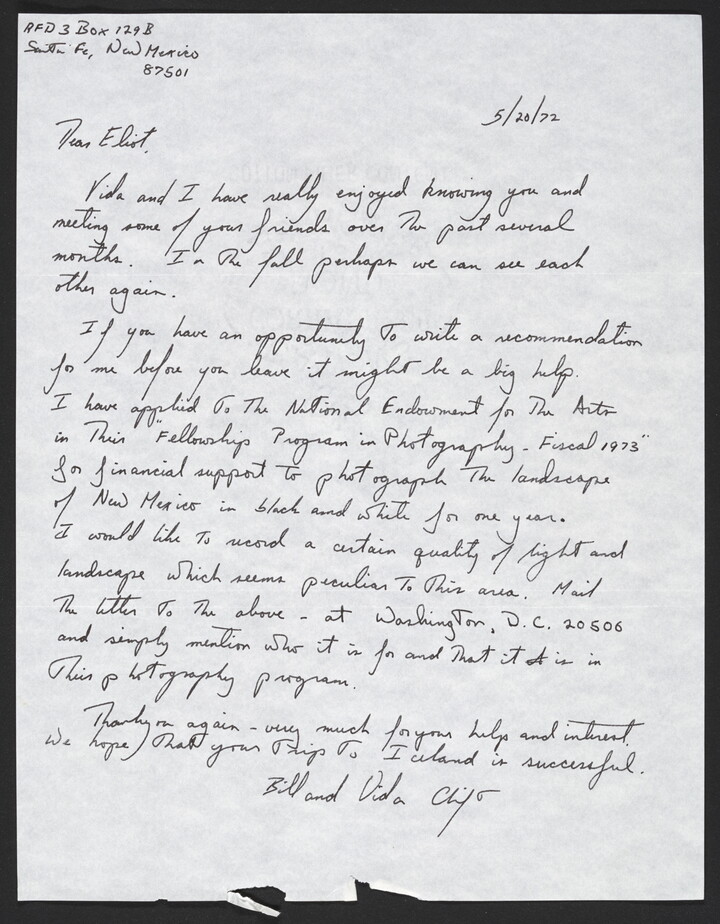 RFD 3 Box 129B
Santa Fe, New Mexico
87501
5/20/72
Dear Eliot,
Vida and I have really enjoyed knowing you and
meeting some of your friends over the past several
months. In the fall perhaps we can see each
other again.
If you have an opportunity to write a recommendation
for me before you leave it might be a big help.
I have applied to the National Endowment for the Arts
in their "Fellowship Program in Photography - Fiscal 1973"
for financial support to photograph the landscape
of New Mexico in black and white for one year.
I would like to record a certain quality of light and
landscape which seems peculiar to this area. Mail
the letter to the above - at Washington, D.C. 20506
and simply mention who it is for and that it is in
their photography program.
Thank you again - very much for your help and interest.
We hope that your trip to Iceland is successful.
Bill and Vida Clift